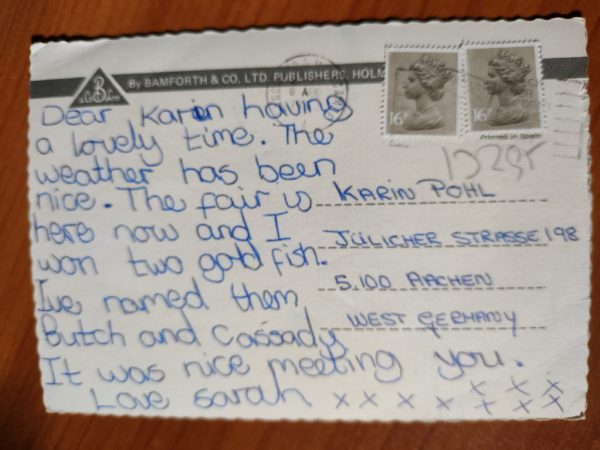 By BAMFORTH & CO. LTD. PUBLISHERS, HOLM
16P
16P
Printed in Spain
Dear Karin having
a lovely time. The
weather has been
nice. The fair is
here now and I
won two gold fish.
Ive named them
Butch and Cassady
It was nice meeting you.
Love sarah x x x x x x x x x x
KARIN POHL
JÜLICHER STRASSE 198
5.100 AACHEN
WEST GERMANY